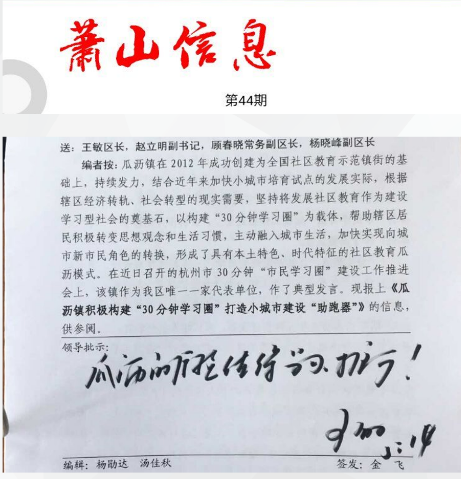 萧山信息
第44期
送：王敏区长，赵立明副书记，顾春晓常务副区长，杨晓峰副区长
编者按：瓜沥镇在 2012 年成功创建为全国社区教育示范镇街的基
础上，持续发力，结合近年来加快小城市培育试点的发展实际，根据
辖区经济转轨、社会转型的现实需要，坚持将发展社区教育作为建设
学习型社会的奠基石，以构建“30 分钟学习圈”为载体，帮助辖区居
民积极转变思想观念和生活习惯，主动融入城市生活，加快实现向城
市新市民角色的转换，形成了具有本土特色、时代特征的社区教育瓜
沥模式。在近日召开的杭州市 30 分钟“市民学习圈”建设工作推进
会上，该镇作为我区唯一一家代表单位，作了典型发言。现报上《瓜
沥镇积极构建“30 分钟学习圈”打造小城市建设“助跑器”》的信息，
供参阅。
领导批示：
瓜沥的经验值得学习、推行！
编辑：杨勋达 汤佳秋
签发：金 飞